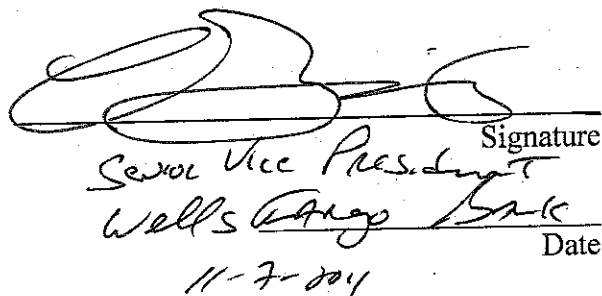 Signature
Senior Vice President
Wells Fargo Bank
Date
11-7-2011